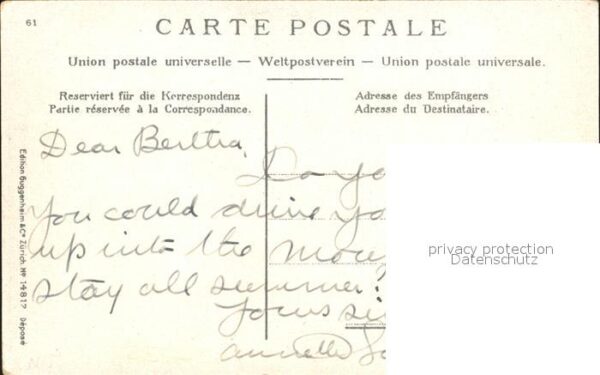 61
CARTE POSTALE
Union postale universelle — Weltpostverein — Union postale universale.
Reserviert für die Korrespondenz
Partie réservée à la Correspondance.
Adresse des Empfängers
Adresse du Destinataire.
Edition Guggenheim & Co Zürich No 14817 Déposé
Dear Bertha,
Do yo
You could drive yo
up into the mou
stay all summer?
Yours si
privacy protection
Datenschutz